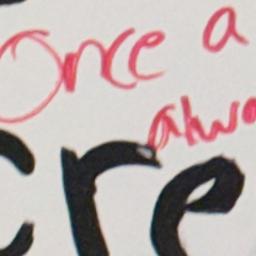 Once a
alwa
cre